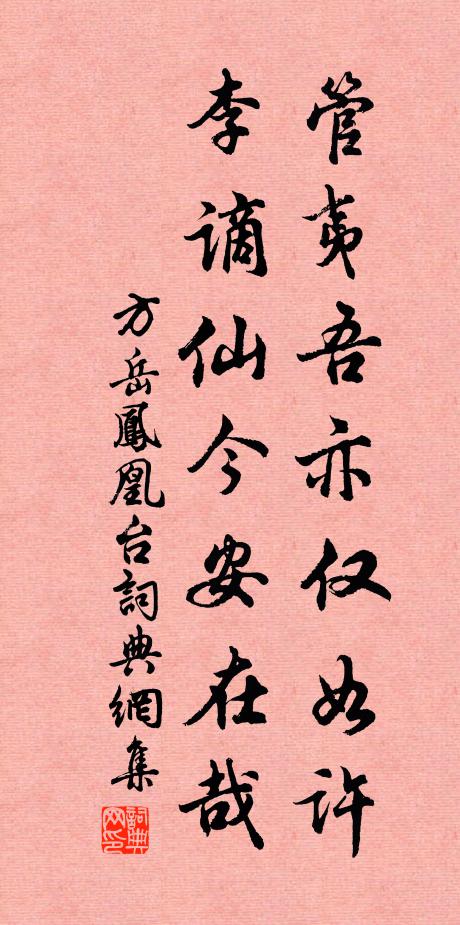 管夷吾亦仅如许
李谪仙今安在哉
方岳鳳凰台詞典網集
詞典网印